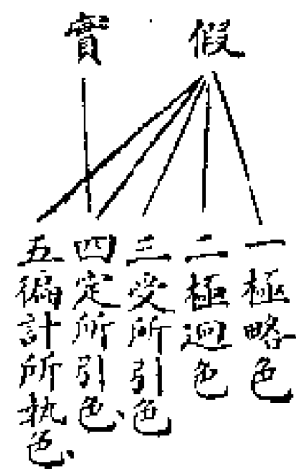 假
實
一極略色
二極迥色
三受所引色
四定所引色、
五徧計所執色、